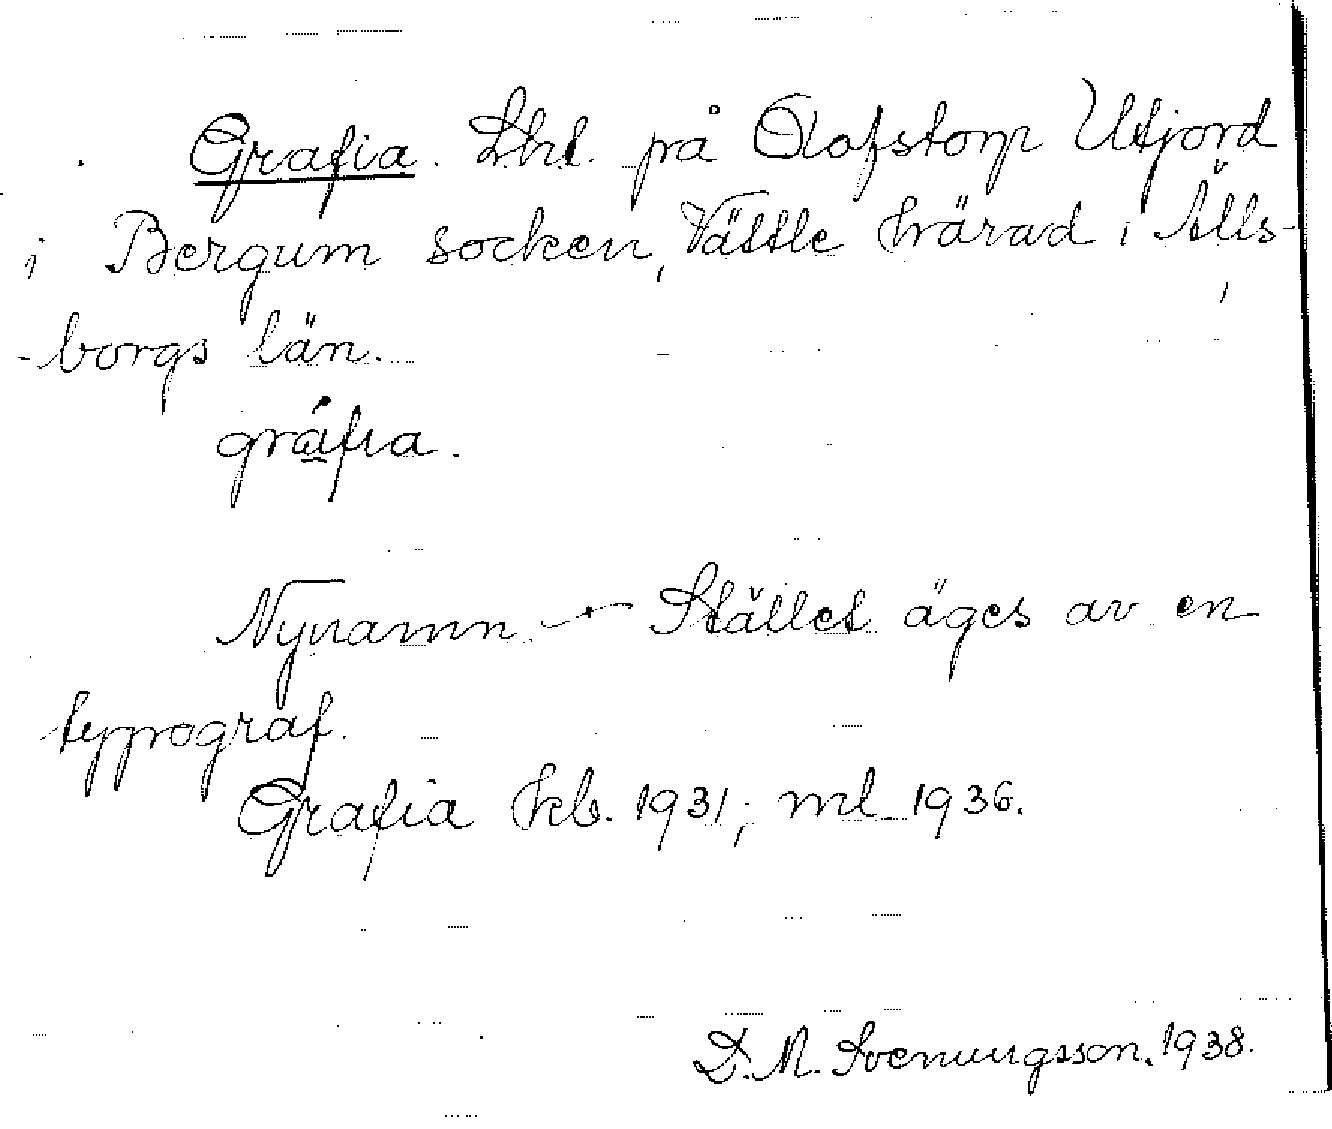 Grafia. Lht. på Olofstorp Utjord
i Bergum socken, Vättle härad i Älfs-
-borgs län.
gráfia.
Nynamn - Stället äges av en
typograf.
Grafia kb. 1931; ml 1936.
D. M. Svenungsson. 1938.